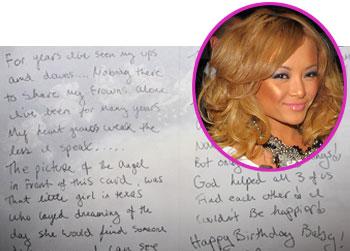 For years i've seen my ups
and downs.... Nobody there
to share my frowns. Alone
i've been for many years
My heart grows weak the
less i speak.....
The picture of the Angel
in front of this card, was
That little girl in texas
who layed dreaming of the
day she would find someone
I can see
But only
God helped all 3 of us
Find each other & i
Couldn't Be happier
Happy Birthday Baby!